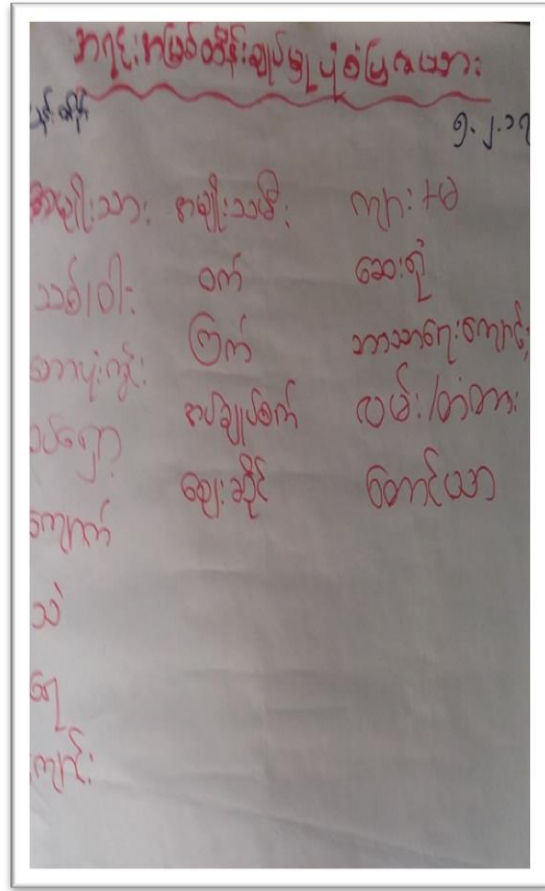 အရင်းအမြစ်ထိန်းချုပ်မှု ပုံစံပြဇယား
၅.၂.၁၇
အမျိုးသား အမျိုးသမီး ကျား+မ
သစ်/ဝါး ဝက် ဆေးရုံ
ကြက် ဘာသာရေးကျောင်း
အပ်ချုပ်စက် လမ်း/တံတား
ကျောက် ဈေးဆိုင် တောင်ယာ
သဲ
ရေ
ကျောင်း